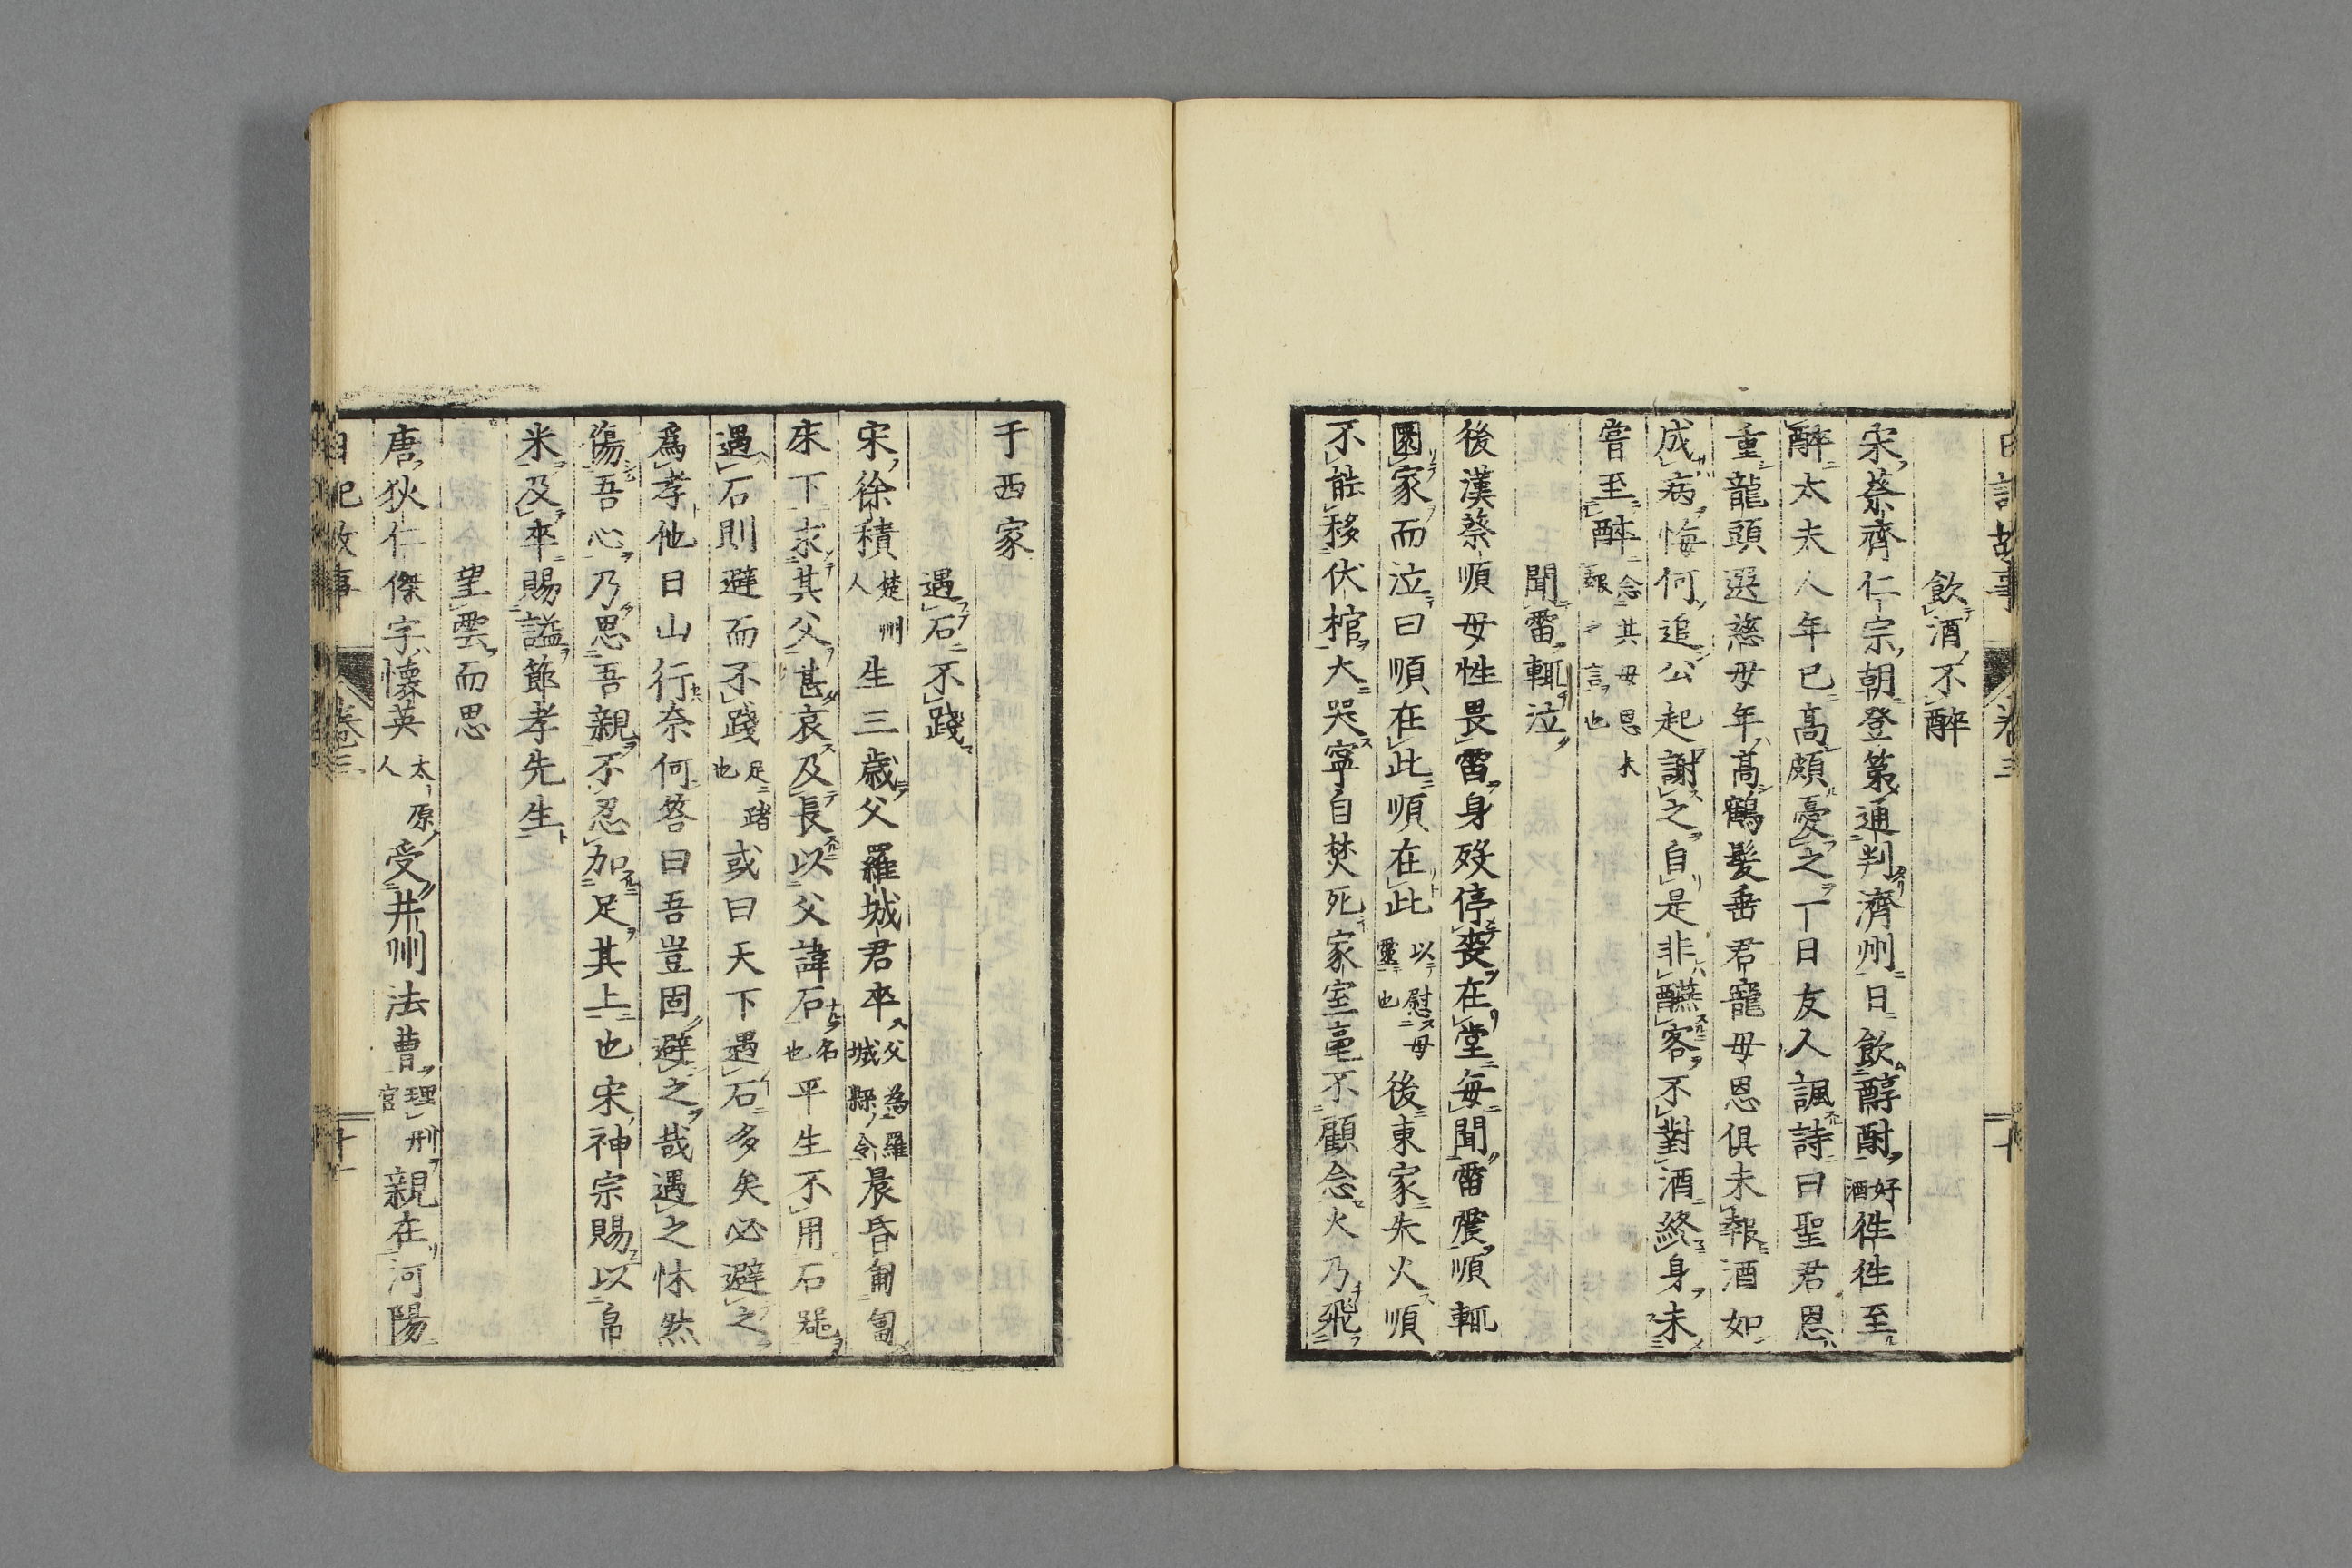 日記故事 卷三 十
飲酒不醉
宋蔡齊仁宗朝登第通判濟州日飲醇酎好酒徃徃至
醉太夫人年已高頗憂之一日友人諷詩曰聖君恩
重龍頭選慈母年高鶴髮垂君寵母恩俱未報酒如
成病悔何追公起謝之自是非醼客不對酒終身未
嘗至醉念其母恩未報之言也
聞雷輒泣
後漢蔡順母性畏雷身歿停喪在堂每聞雷震順輒
圜冢而泣曰順在此順在此以慰母靈也後東家失火順
不能移伏棺大哭寧自焚死家室毫不顧念火乃飛
于西家
遇石不踐
宋徐積楚州人生三歲父羅城君卒父為羅城縣令晨昏匍匐
床下求其父甚哀及長以父諱石名也平生不用石器
遇石則避而不踐足踏也或曰天下遇石多矣必避之
爲孝他日山行奈何答曰吾豈固避之哉遇之怵然
傷吾心乃思吾親不忍加足其上也宋神宗賜以帛
米及卒賜謚節孝先生
望雲而思
唐狄仁傑字懷英太原人受井州法曹理刑官親在河陽
日記故事 卷三 十一